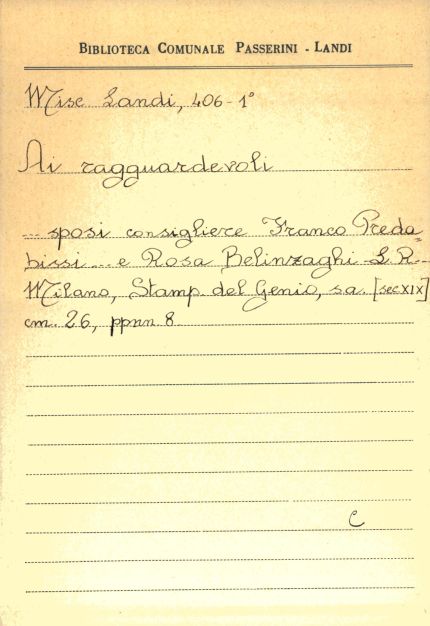 BIBLIOTECA COMUNALE PASSERINI - LANDI
Misc Landi, 406-1°
Ai ragguardevoli
... sposi consigliere Franco Preda=
bissi ... e Rosa Belinzaghi L. R.
Milano, Stamp. del Genio, s.a. [sec XIX]
cm. 26, ppnn 8
C